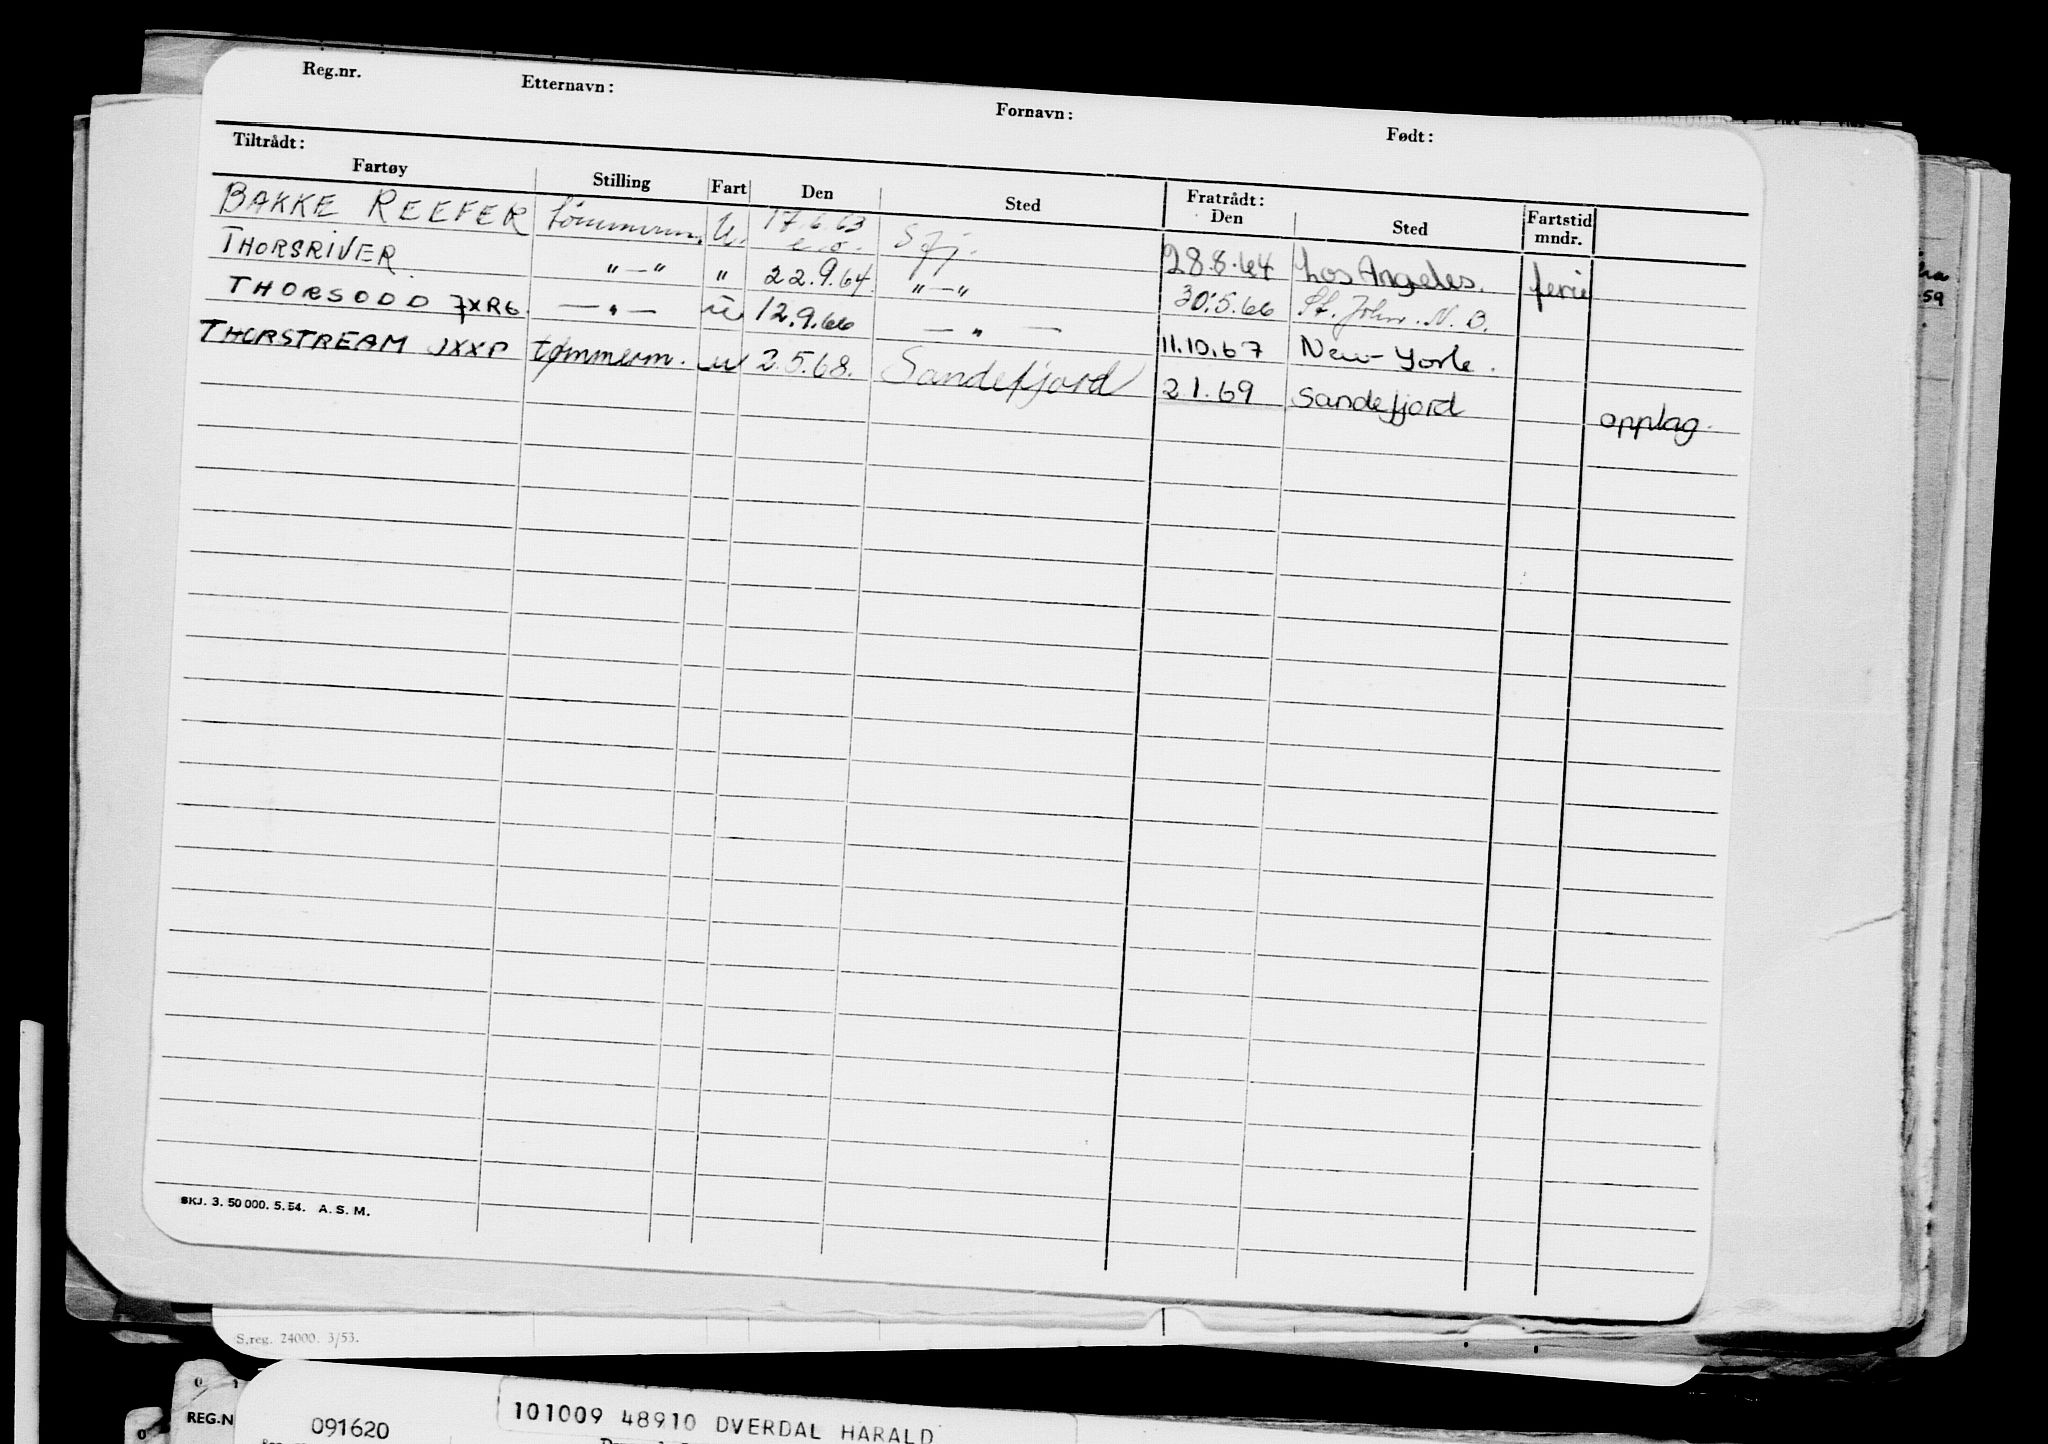 Reg.nr. Etternavn: Fornavn: Født:
Tiltrådt: Fratrådt:
Fartøy Stilling Fart Den Sted Den Sted Fartstid mndr.
BAKKE REEFER tømmerm. U. 17.6.63 e.o. Sfj. 28.8.64 Los Angeles. ferie
THORSRIVER „—„ „ 22.9.64. „—„ 30.5.66 St. John. N. B.
THORSODD JXR6. —„— u 12.9.66 —„— 11.10.67 New-York.
THORSTREAM JXXP tømmerm. u 2.5.68. Sandefjord 2.1.69 Sandefjord opplag.
SKJ. 3. 50 000. 5. 54. A. S. M.
S.reg. 24000. 3/53.
59
0 1
REG.N 091620 101009 48910 DVERDAL HARALD
0